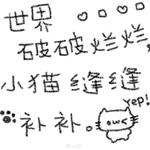 世界
破破烂烂，
小猫缝缝
yep!
补补。
owc